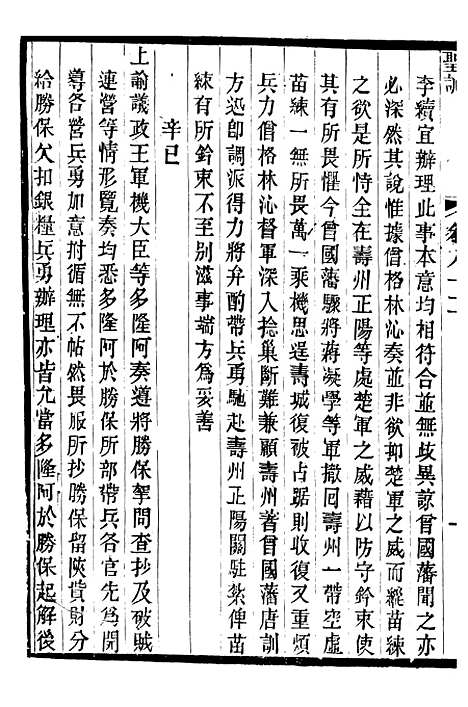 聖訓
李續宜辦理此事本意均相符合並無歧異諒曾國藩聞之亦
必深然其說惟據僧格林沁奏並非欲抑楚軍之威而縱苗練
之欲是所恃全在壽州正陽等處楚軍之威藉以防守鈐束使
其有所畏懼今曾國藩驟將蔣凝學等軍撤回壽州一帶空虛
苗練一無所畏萬一乘機思逞壽城復被占踞則收復更重煩
兵力僧格林沁督軍深入捻巢斷難兼顧壽州著曾國藩唐訓
方迅即調派得力將弁酌帶兵勇馳赴壽州正陽關駐紮俾苗
練有所鈐束不至別滋事端方為妥善
辛巳
上諭議政王軍機大臣等多隆阿奏遵將勝保拏問查抄及破賊
連營等情形覽奏均悉多隆阿於勝保所部帶兵各官先為開
導各營兵勇加意拊循無不帖然畏服所抄勝保留陝貲財分
給勝保欠扣銀糧兵勇辦理亦皆允當多隆阿於勝保起解後